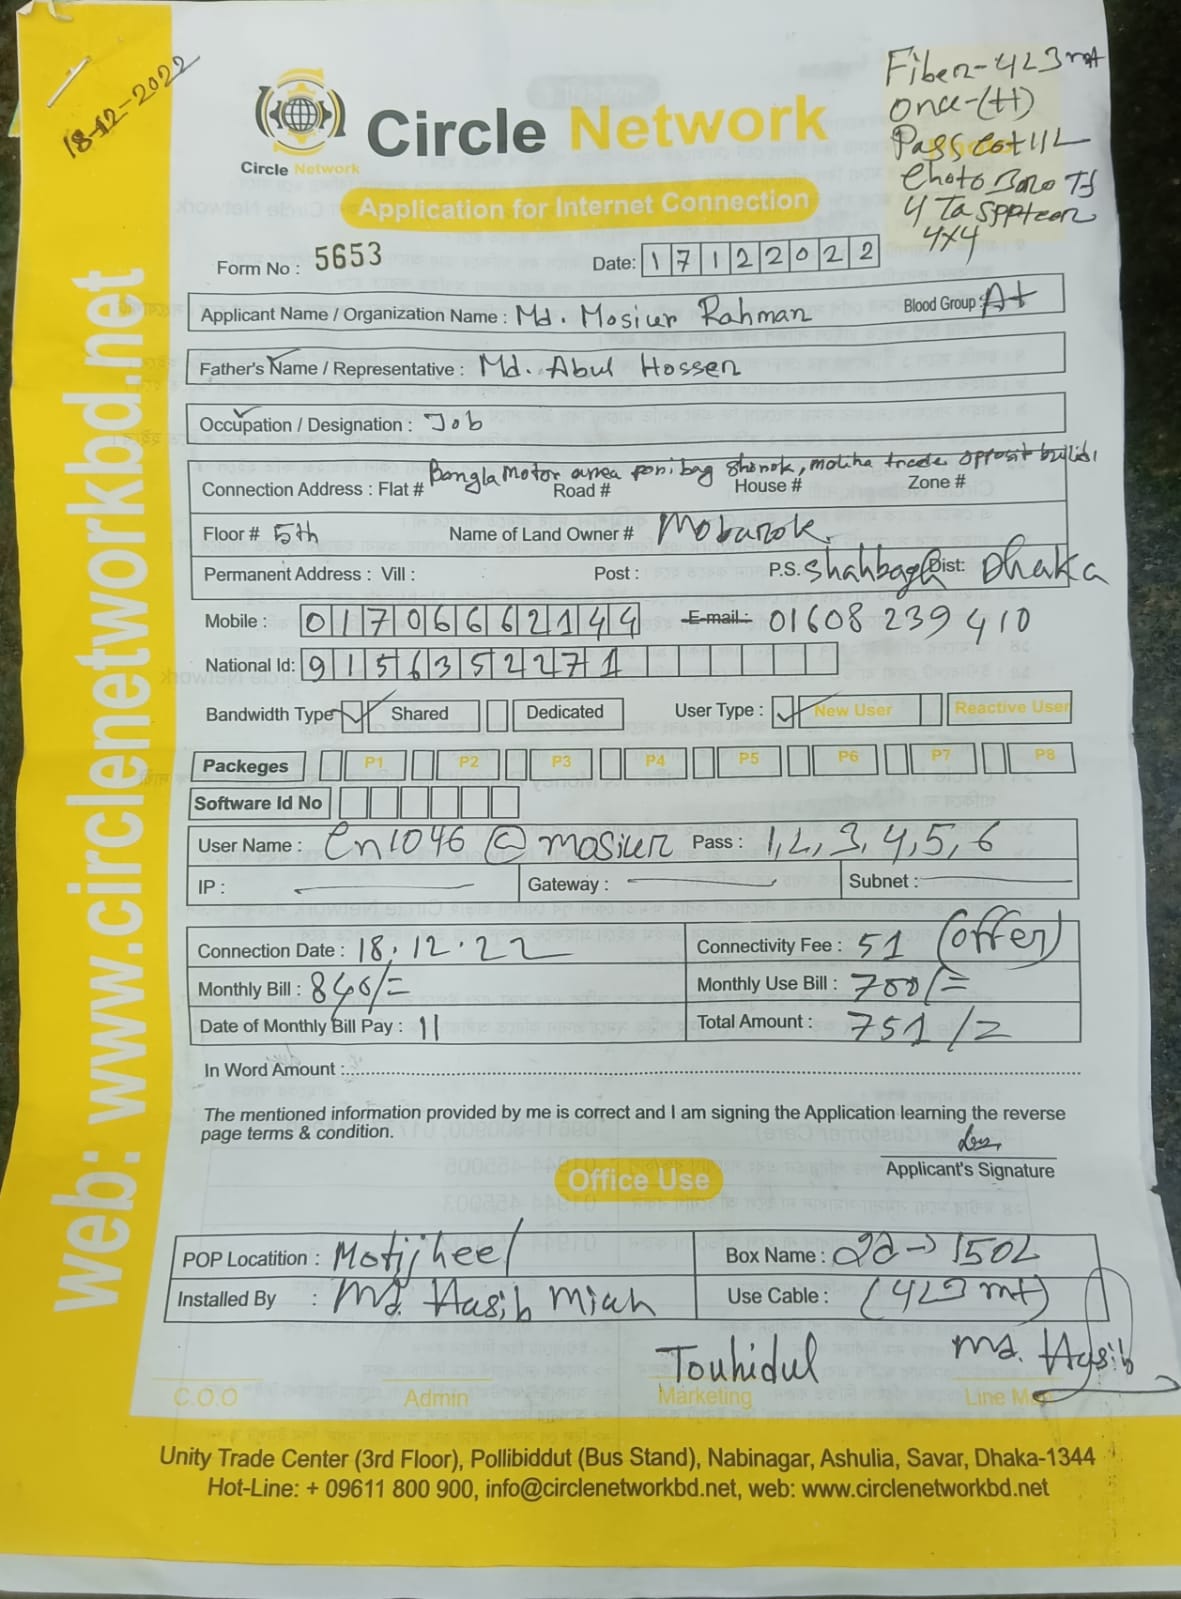 18-12-2022
Fiber-423 mt
once-(H)
Circle Network
Circle Network
Application for Internet Connection
4x4
Form No : 5653
Date: 17122022
Applicant Name / Organization Name : Md. Mosiur Rahman Blood Group : A+
Father's Name / Representative : Md. Abul Hossen
Occupation / Designation : Job
Bangla Motor area poribag shorok, moliha trade opposit
Connection Address : Flat # Road # House # Zone #
Floor # 5th Name of Land Owner # Mobarok
Permanent Address : Vill : Post : P.S. Shahbagh Dist: Dhaka
Mobile : 01706662144 E-mail : 01608 239 410
National Id: 9156352271
Bandwidth Type Shared Dedicated User Type : New User Reactive User
Packeges P1 P2 P3 P4 P5 P6 P7 P8
Software Id No
User Name : Cn1046 @ mosiur Pass : 1,2,3,4,5,6
IP : Gateway : Subnet :
Connection Date : 18.12.22 Connectivity Fee : 51 (offer)
Monthly Bill : 840/= Monthly Use Bill : 700/=
Date of Monthly Bill Pay : 11 Total Amount : 751/=
In Word Amount :
The mentioned information provided by me is correct and I am signing the Application learning the reverse
page terms & condition.
Applicant's Signature
Office Use
POP Locatition : Motijheel Box Name : 2d→1502
Installed By : Md. Hasib Miah Use Cable : (423 mt)
Touhidul Md. Hasib
C.O.O Admin Marketing Line Man
Unity Trade Center (3rd Floor), Pollibiddut (Bus Stand), Nabinagar, Ashulia, Savar, Dhaka-1344
Hot-Line: + 09611 800 900, info@circlenetworkbd.net, web: www.circlenetworkbd.net
web: www.circlenetworkbd.net